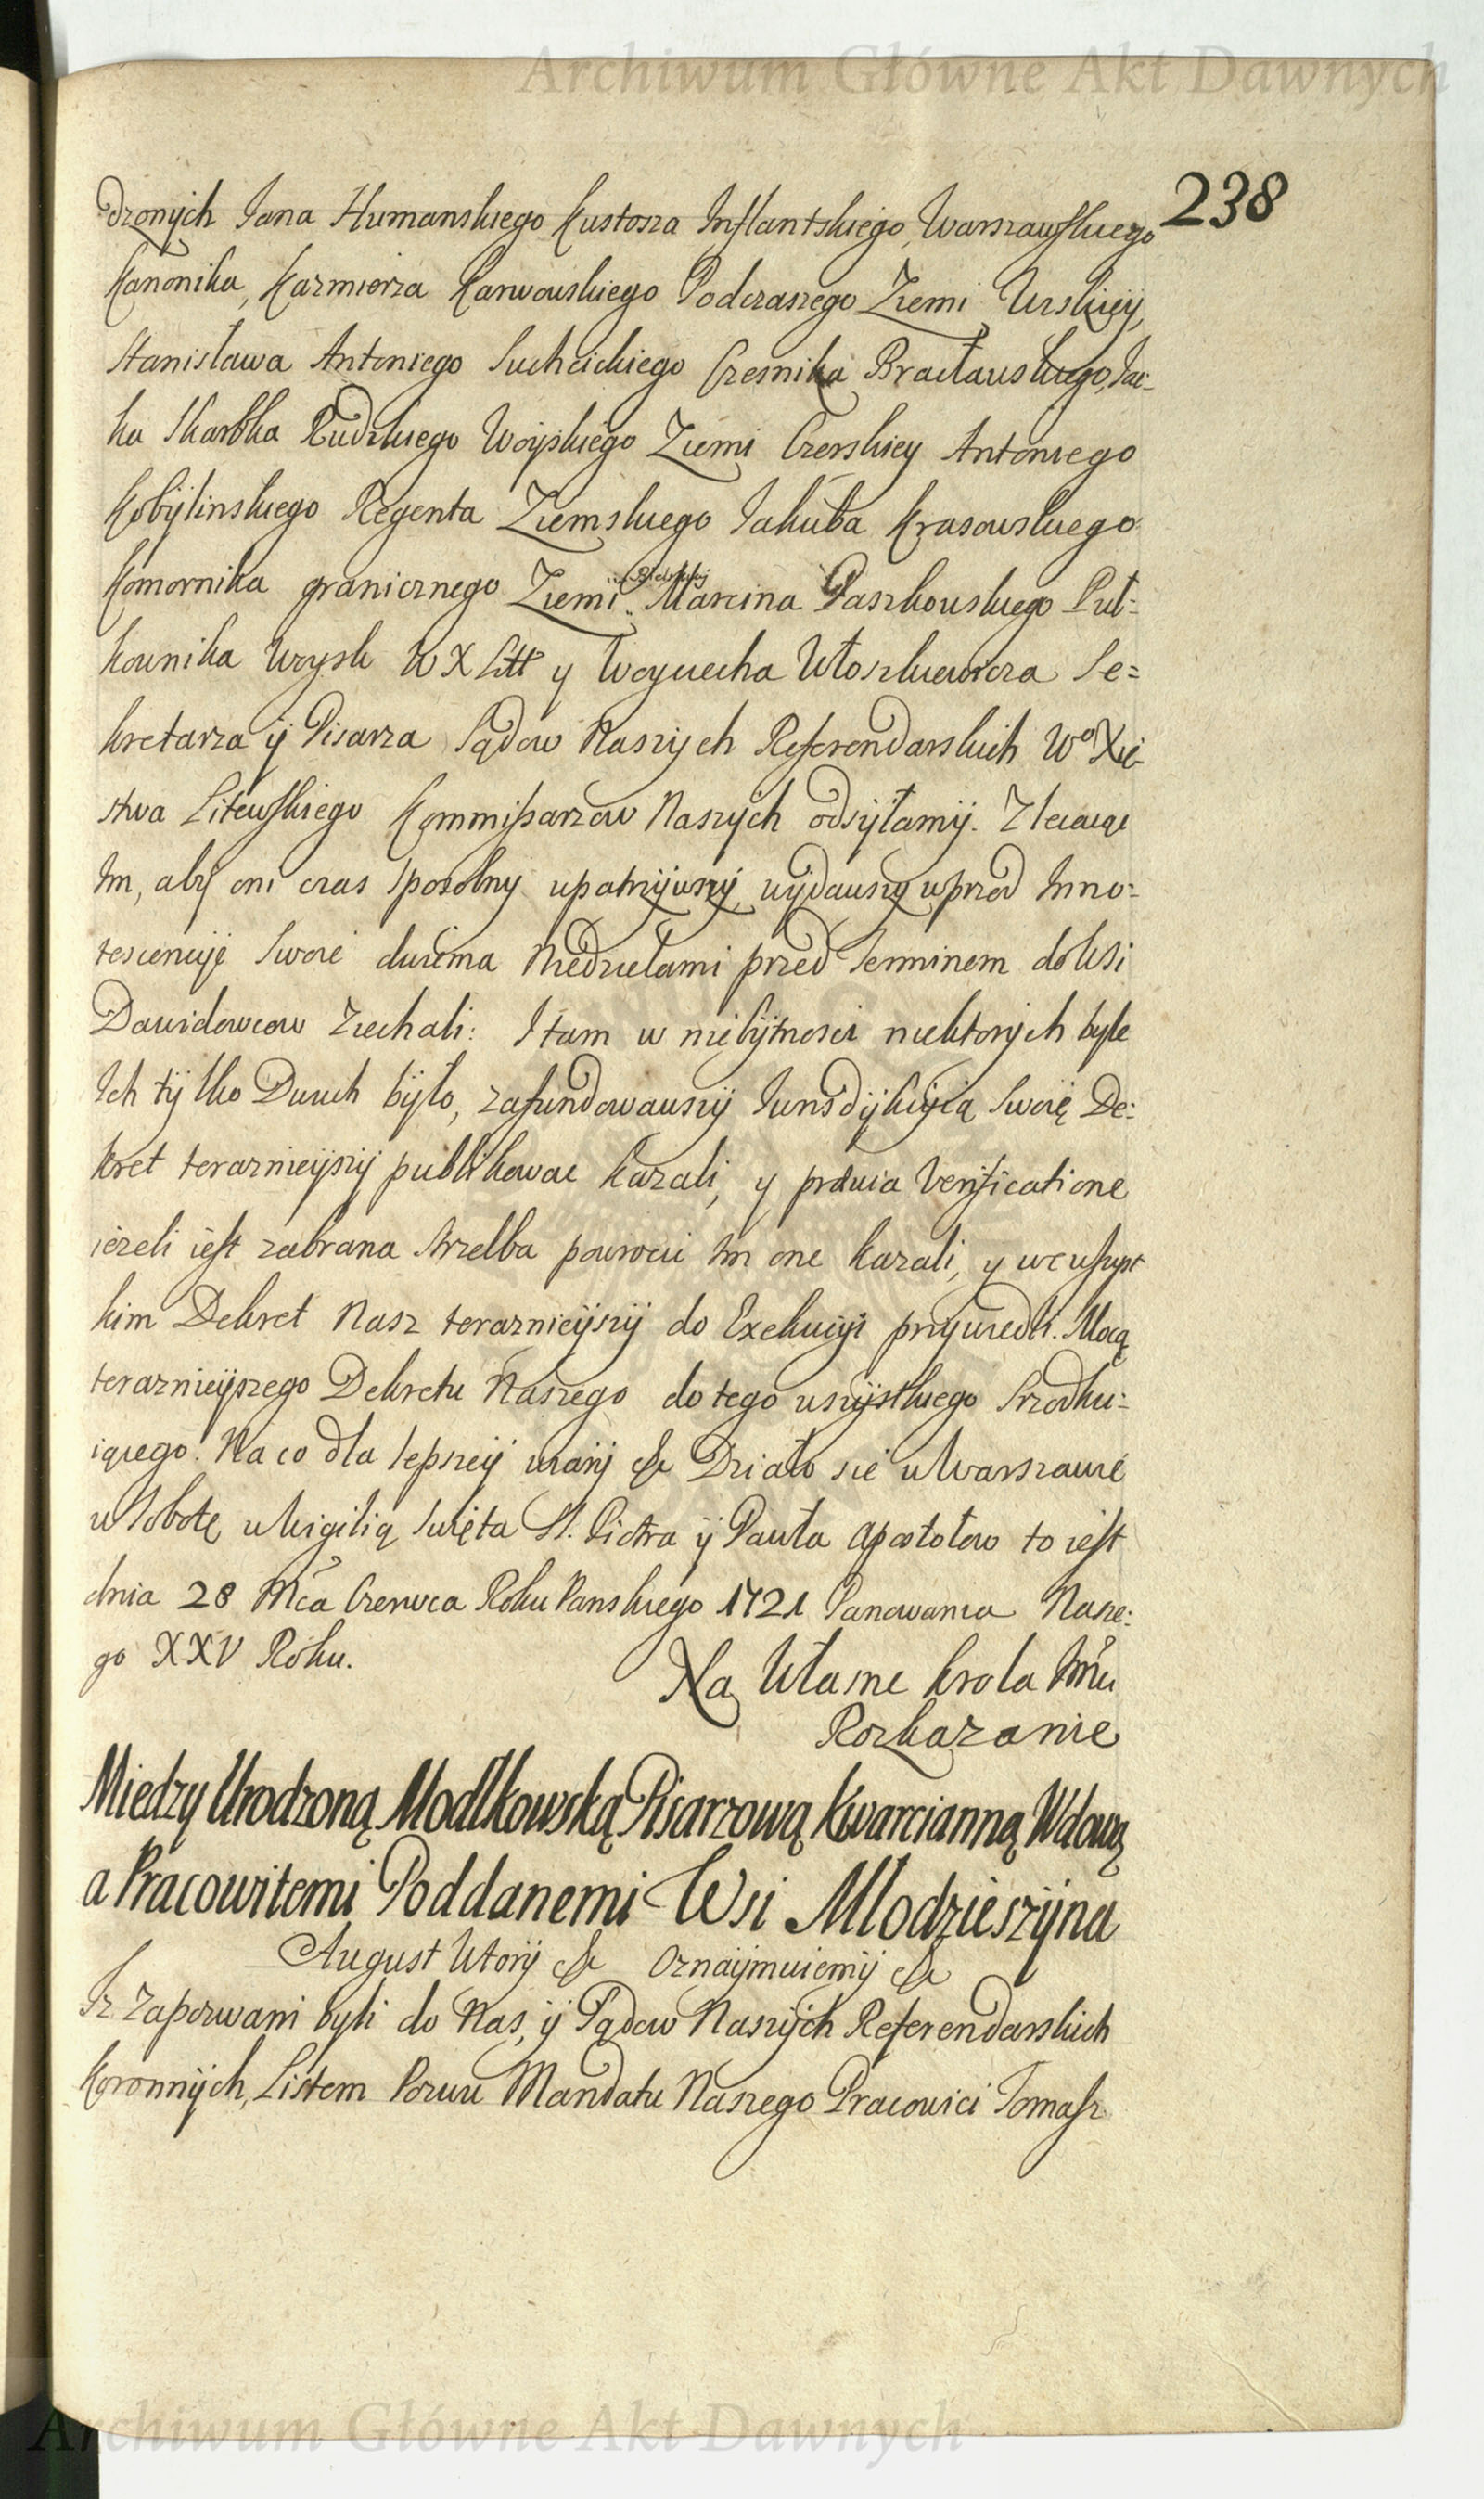 Archiwum Główne Akt Dawnych
238
dzonych Jana Humanskiego Kustosza Inflantskiego, Warszawskiego
Kanonika, Kazmierza Karwowskiego Podczaszego Ziemi Wizkiey,
Stanisława Antoniego Suchcickiego Czesnika Bracławskiego, Jac-
ka Skarbka Rudzkiego Woyskiego Ziemi Czerskiey Antoniego
Kobylinskiego Regenta Ziemskiego Jakuba Krasowskiego
Komornika granicznego Ziemi Bielskiey Marcina Paszkowskiego Puł=
kownika Woysk W X Litt y Woyciecha Włoszkiewicza Se=
kretarza ÿ Pisarza Sądow Naszych Referendarskich Wᵒ Xię-
stwa Litewskiego Kommissarzow Naszych odsyłamÿ. Zlecaiąc
Im, abÿ oni czas sposobny upatrzÿwszÿ, wÿdawszÿ wprzod Inno=
tescencÿe Swoie dwiema Niedzielami przed Terminem do Wsi
Dawidowcow Ziechali: I tam w niebÿtnosci niektorÿch byle
Ich tÿlko Dwuch bÿło, zafundowawszÿ Jurisdÿkcÿią Swoię De=
kret teraznieÿszÿ publikowac kazali, y prævia Verificatione
iezeli iest zabrana Strzelba powrocic Im one kazali, y we wszyst
kim Dekret Nasz teraznieÿszÿ do Exekucÿi przÿwiedli. Mocą
teraznieÿszego Dekretu Naszego do tego wszÿstkiego Srzodku=
iącego. Na co dla lepszeÿ wiarÿ &c Działo się w Warszawie
w Sobotę w Wigilią Swięta SS. Piotra ÿ Pawła Apostołow to iest
dnia 28 Mca Czerwca Roku Panskiego 1721 Panowania Nasze=
go XXV Roku.
Na Własne Krola Jmci
Rozkazanie
Miedzy Urodzoną Modlkowską Pisarzową Kwarcianną Wdową
a Pracowitemi Poddanemi Wsi Mlodzieszÿna
August Wtorÿ &c Oznaÿmuiemÿ &c
Iz Zapozwani byli do Nas, ÿ Sądow Naszÿch Referendarskich
Koronnÿch, Listem Pozwu Mandatu Naszego Pracowici Tomasz
Archiwum Główne Akt Dawnych